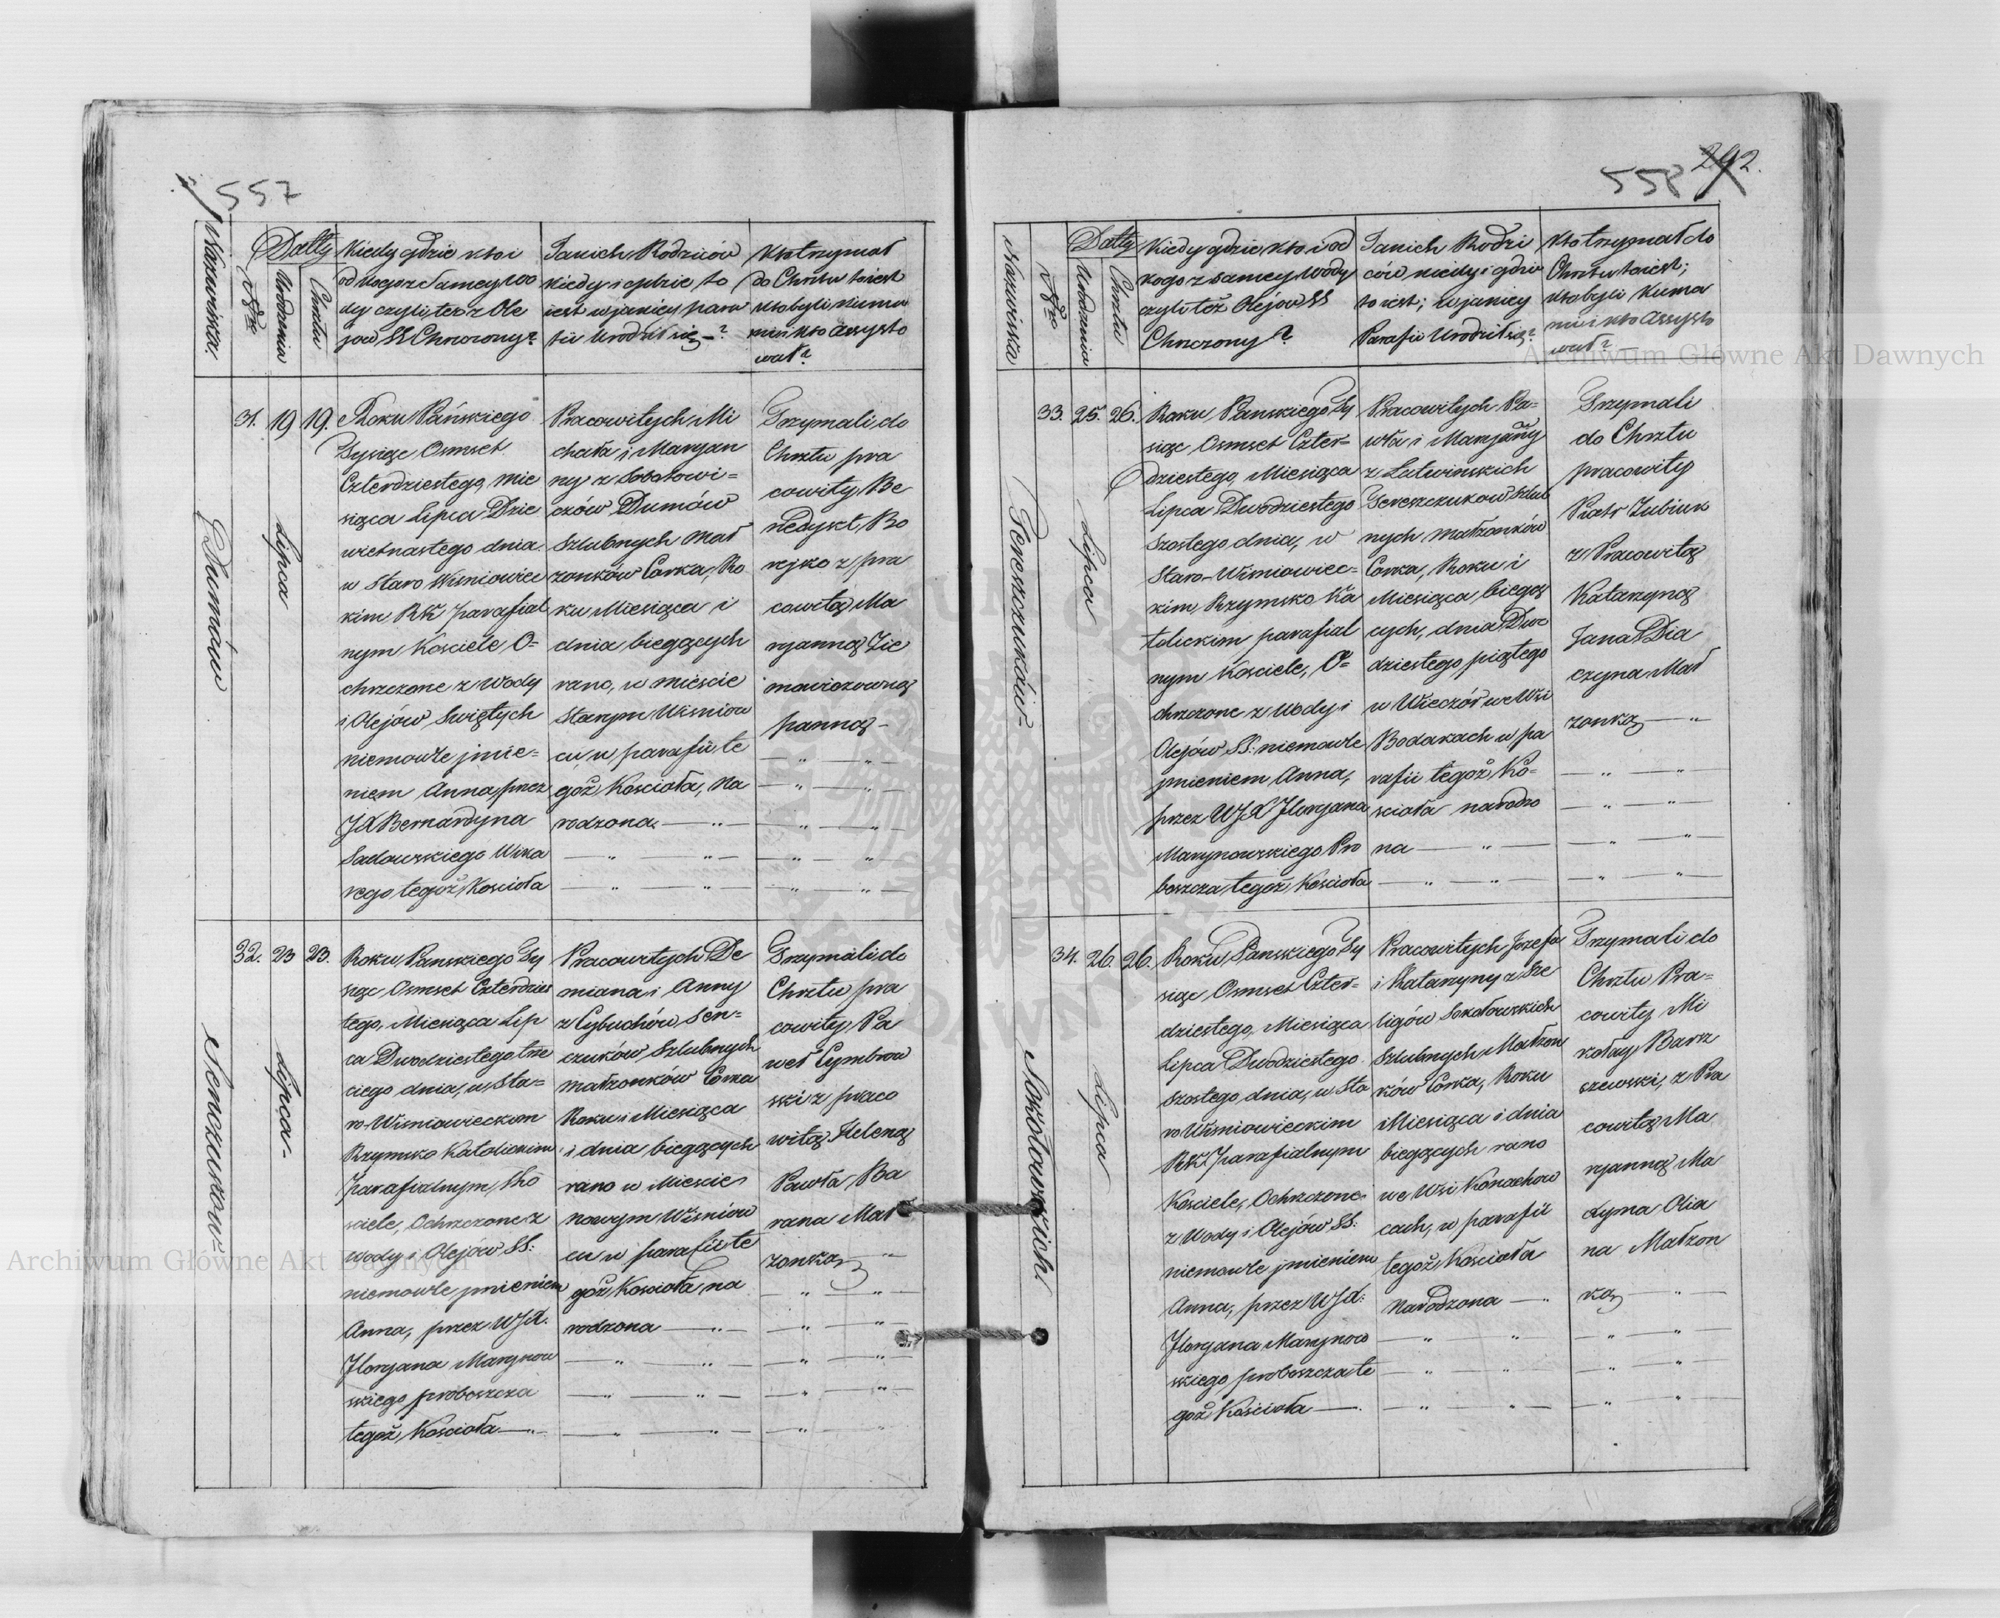 557
Nazwiska.
Nro
Datty
Urodzenia
Chrztu
Kiedy gdzie kto i
od kogo z samey wo
dy czyli też z Ole
jow SS Chrzczony?
Jakich Rodziców
kiedy i gdzie, to
iest w jakiey para
fii urodził się?
Kto trzymał
do Chrztu to iest
kto byli kuma
mi i kto assysto
wał?
Dumów
31.
19
Lipca
19.
Roku Pańskiego
Tysiąc Osmset
Czterdziestego, Mie
siąca Lipca Dzie
wietnastego dnia
w Staro Wiśniowiec
kim RK parafial
nym Kosciele O=
chrzczone z wody
i Olejów Swiętych
niemowle jmie=
niem Anna, przez
JX Bernardyna
Sadowskiego Wika
rego tegoż Kościoła
Pracowitych Mi
chała i Maryan
ny z Sobotowi=
czów Dumów
Szlubnych Mał
żonków Corka, Ro
ku Miesiąca i
dnia bieżących
rano, w mieście
Starym Wisniow
cu w parafii te
goż Kościoła, Na
rodzona.
Trzymali do
Chrztu pra
cowity Be
nedykt Bo
rejko z pra
cowitą Ma
ryanną Zie
mowiczowną
panną
Senczuków
32.
23
Lipca
23.
Roku Panskiego Ty
siąc Osmset Czterdzies
tego, Miesiąca Lip
ca Dwodziestego trze
ciego dnia, w Sta=
ro Wiśniowieckim
Rzymsko Katolickim
parafialnym, Ko
sciele, Ochrzczone z
wody i Olejów SS:
niemowle jmieniem
Anna, przez WJX.
Floryana Marynow
skiego proboszcza
tegoż Kościoła
Pracowitych De
miana i Anny
z Cybuchów Sen=
czuków Szlubnych
małżonków Corka
Roku i Miesiąca
i dnia bieżących
rano w Miescie
Nowym Wisniow
cu w parafii te
goż Kościoła, na
rodzona
Trzymali do
Chrztu pra
cowity Pa
weł Cymbrow
ski z praco
witą Heleną
Pawła Ba
rana Mał
żonką
558
292.
Nazwiska
Nro
Datty
Urodzenia
Chrztu
Kiedy gdzie, kto i od
kogo z samey wody
czyli też Olejow SS
Chrzczony?
Jakich Rodzi
ców kiedy i gdzie
to iest; w jakiey
Parafii Urodził się?
Kto trzymał do
Chrztu to iest;
kto byli Kuma
mi i kto Assysto
wał?
Tereszczuków
33.
25.
Lipca
26.
Roku Panskiego Ty
siąc Osmset Czter=
dziestego, Miesiąca
Lipca Dwodziestego
Szostego dnia, w
Staro-Wiśniowiec=
kim, Rzymsko Ka
tolickim parafial
nym Kosciele, O=
chrzczone z wody i
Olejów SS: niemowle
jmieniem Anna,
przez WJX Floryana
Marynowskiego Pro
boszcza tegoż Kościoła
Pracowitych Pa=
wła i Maryanny
z Lutwinskich
Tereszczukow Szlub
nych małżonków
Corka, Roku i
Miesiąca bieżą
cych, dnia Dwo
dziestego piątego
w Wieczór we Wsi
Bodakach w pa
rafii tegoż Ko=
scioła narodzo
na
Trzymali
do Chrztu
pracowity
Piotr Zubiuk
z Pracowitą
Katarzyną
Jana Dia
czyna Mał
żonką
Sokołowskich
34.
26.
Lipca
26.
Roku Panskiego Ty
siąc Osmset Czter=
dziestego, Miesiąca
Lipca Dwodziestego
Szostego dnia, w Sta
ro Wiśniowieckim
RK parafialnym
Kosciele, Ochrzczone
z wody i Olejów SS:
niemowle jmieniem
Anna, przez WJX:
Floryana Marynow
skiego proboszcza te
goż Kościoła
Pracowitych Jozefa
i Katarzyny z Sze
ligów Sokołowskich
Szlubnych Małżon
ków Corka, Roku
Miesiąca i dnia
bieżących rano
we Wsi Konachow
cach, w parafii
tegoż Kościoła
Narodzona
Trzymali do
Chrztu Pra=
cowity Mi
kołay Barz
szewski, z Pra
cowitą Ma
ryanną Ma
dyma Olia
na Małżon
ką
Archiwum Główne Akt Dawnych
Archiwum Główne Akt Dawnych